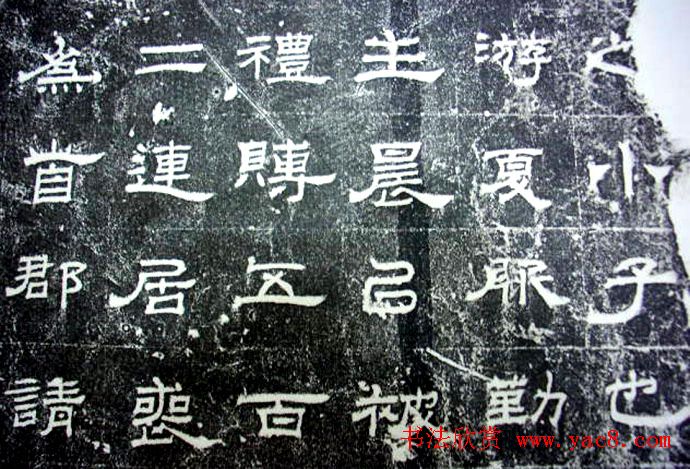 之小子也
游夏服勤
主晨㠯被
禮賻五百
二連居喪
首郡請
书法欣赏 www.yac8.com